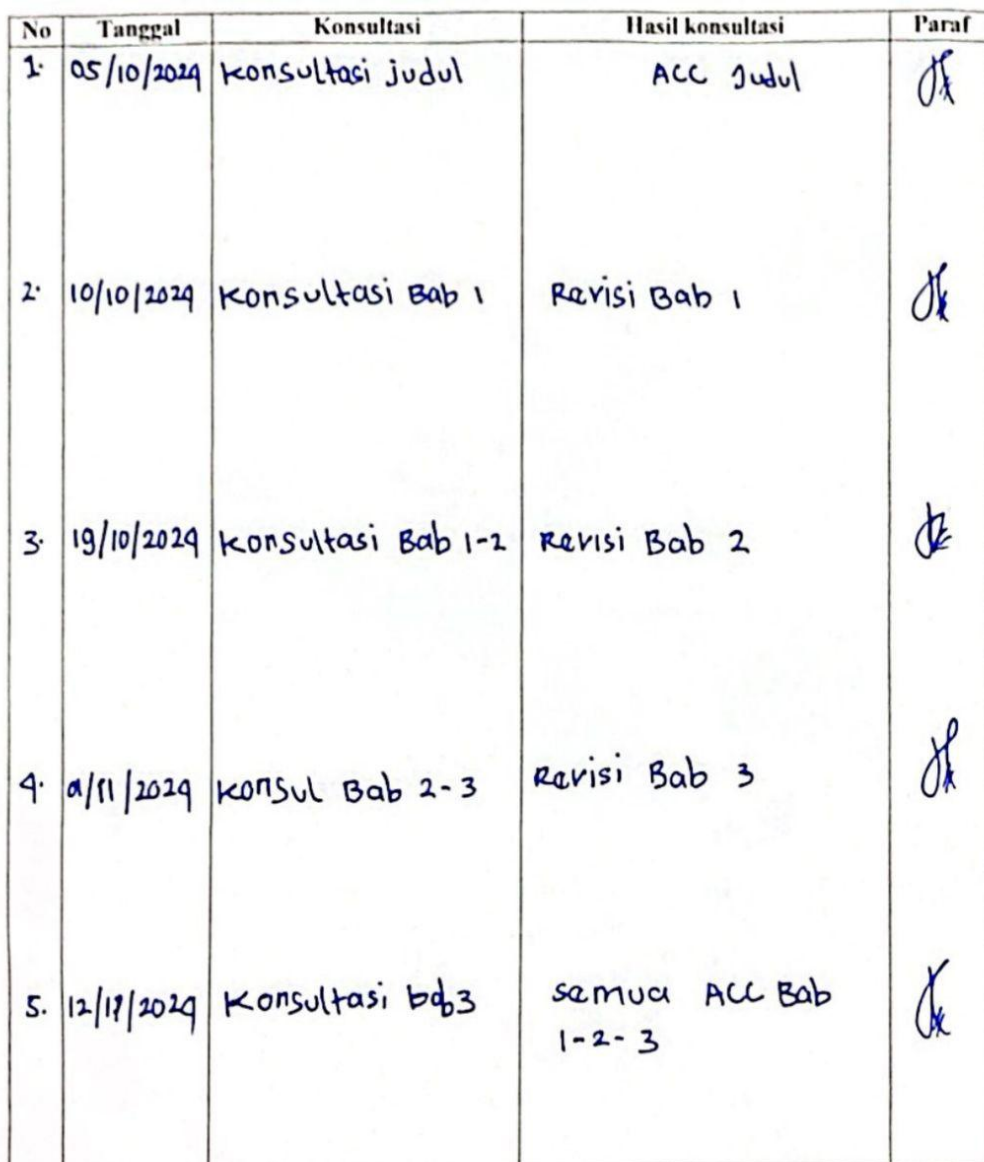 No Tanggal Konsultasi Hasil konsultasi Paraf
1. 05/10/2024 Konsultasi judul ACC Judul
2. 10/10/2024 Konsultasi Bab 1 Revisi Bab 1
3. 19/10/2024 Konsultasi Bab 1-2 Revisi Bab 2
4. /11/2024 Konsul Bab 2-3 Revisi Bab 3
5. Konsultasi bab 3 semua ACC Bab
1-2-3